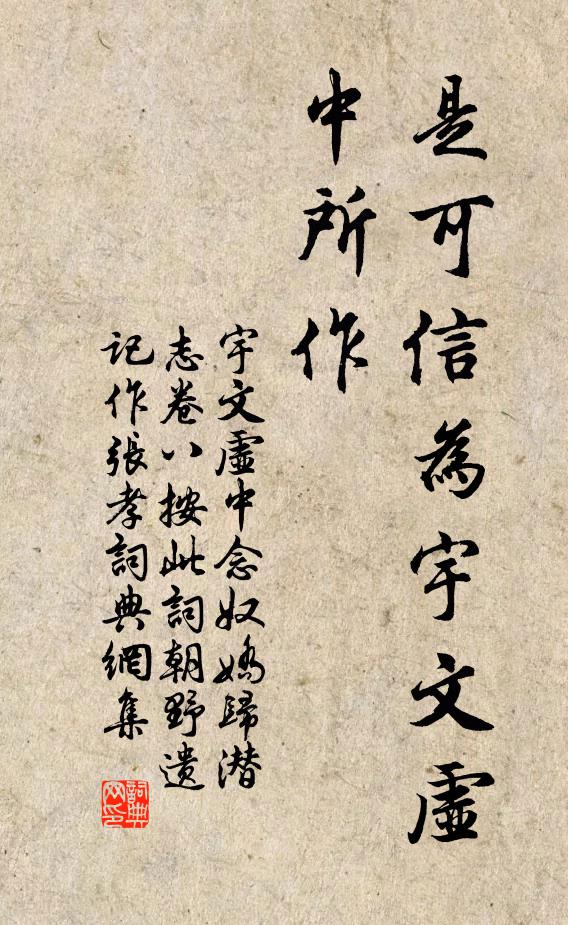 是可信為宇文虛
中所作
宇文虛中念奴嬌歸潛
志卷八按此詞朝野遺
记作張孝詞典網集
詞典
网印